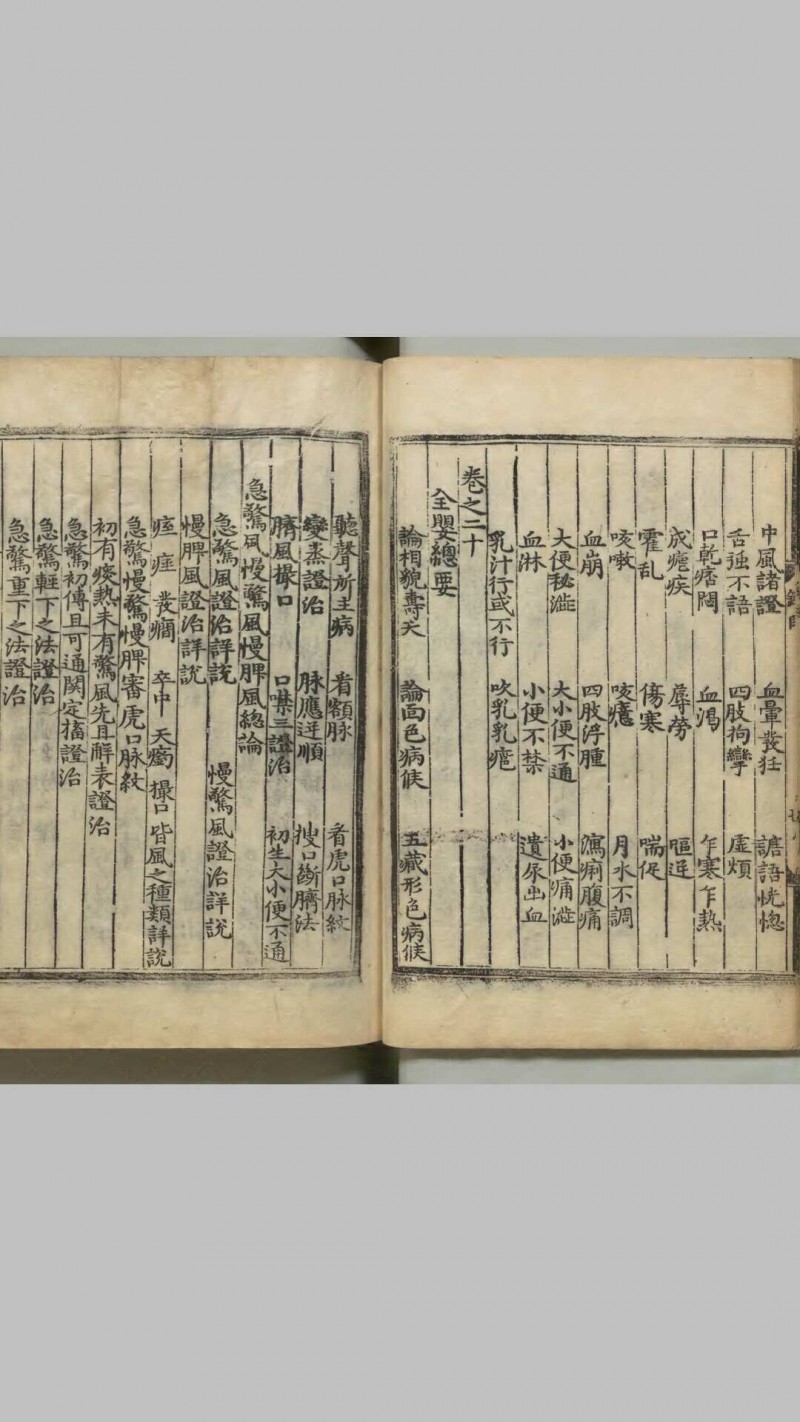 中風諸證 血暈發狂 譫語恍惚
舌强不語 四肢拘攣 虛煩
口乾痞悶 血渴 乍寒乍熱
成瘧疾 蓐勞 嘔逆
霍亂 傷寒 喘促
咳嗽 咳癔 月水不調
血崩 四肢浮腫 瀉痢腹痛
大便秘澁 大小便不通 小便痛澁
血淋 小便不禁 遺尿出血
乳汁行或不行 吹乳乳瘡
卷之二十
全嬰總要
論相貌壽夭 論面色病候 五藏形色病候
聽聲所主病 看額脉 看虎口脉紋
變蒸證治 脉應逆順 搜口斷臍法
臍風撮口 口噤三證治 初生大小便不通
急驚風慢驚風慢脾風緫論
急驚風證治詳説 慢驚風證治詳說
慢脾風證治詳説
痓 痙 發癎 卒中 天瘹 撮口 皆風之種類詳說
急驚慢驚慢脾審虎口脉紋
初有痰熱未有驚風先且解表證治
急驚初傳且可通関定搐證治
急驚輕下之法證治
急驚重下之法證治